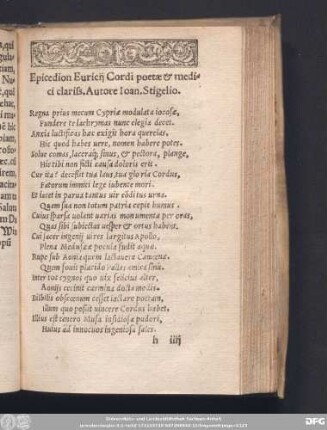 Epicedion Euricĳ Cordi poetæ & medi-
ci clariss. Autore Ioan. Stigelio.
Regna prius mecum Cypriæ modulata iocosæ,
Fundere te lachrymas nunc elegia decet.
Anxia luctificas hæc exigit hora querelas,
Hic quod habet uere, nomen habere potes.
Solue comas, laceraq; sinus, & pectora, plange,
Hic tibi non ficti causa doloris erit.
Cur ita? decessit tua laus, tua gloria Cordus,
Fatorum immiti lege iubente mori.
Et iacet in parua tantus uir conditus urna
Quem sua non totum patria cepit humus.
Cuius sparsa uolant uarias monumenta per oras,
Quas sibi subiectas uesper & ortus habent.
Cui iacer ingenĳ uires largitus Apollo,
Plena Medusææ pocula fudit aquæ.
Rupe sub Aonia quem lactauere Camœnæ,
Quem fouit placido uallis amœna sinu.
Inter tot cygnos quo uix felicius alter,
Aonĳs cecinit carmina docta modis.
Nobilis obscœnum cesset iactare poetam,
Illum quo possit uincere Cordus habet.
Illius est tenero Musa insidiosa pudori,
Huius ad innocuos ingeniosa sales.
h iiĳ